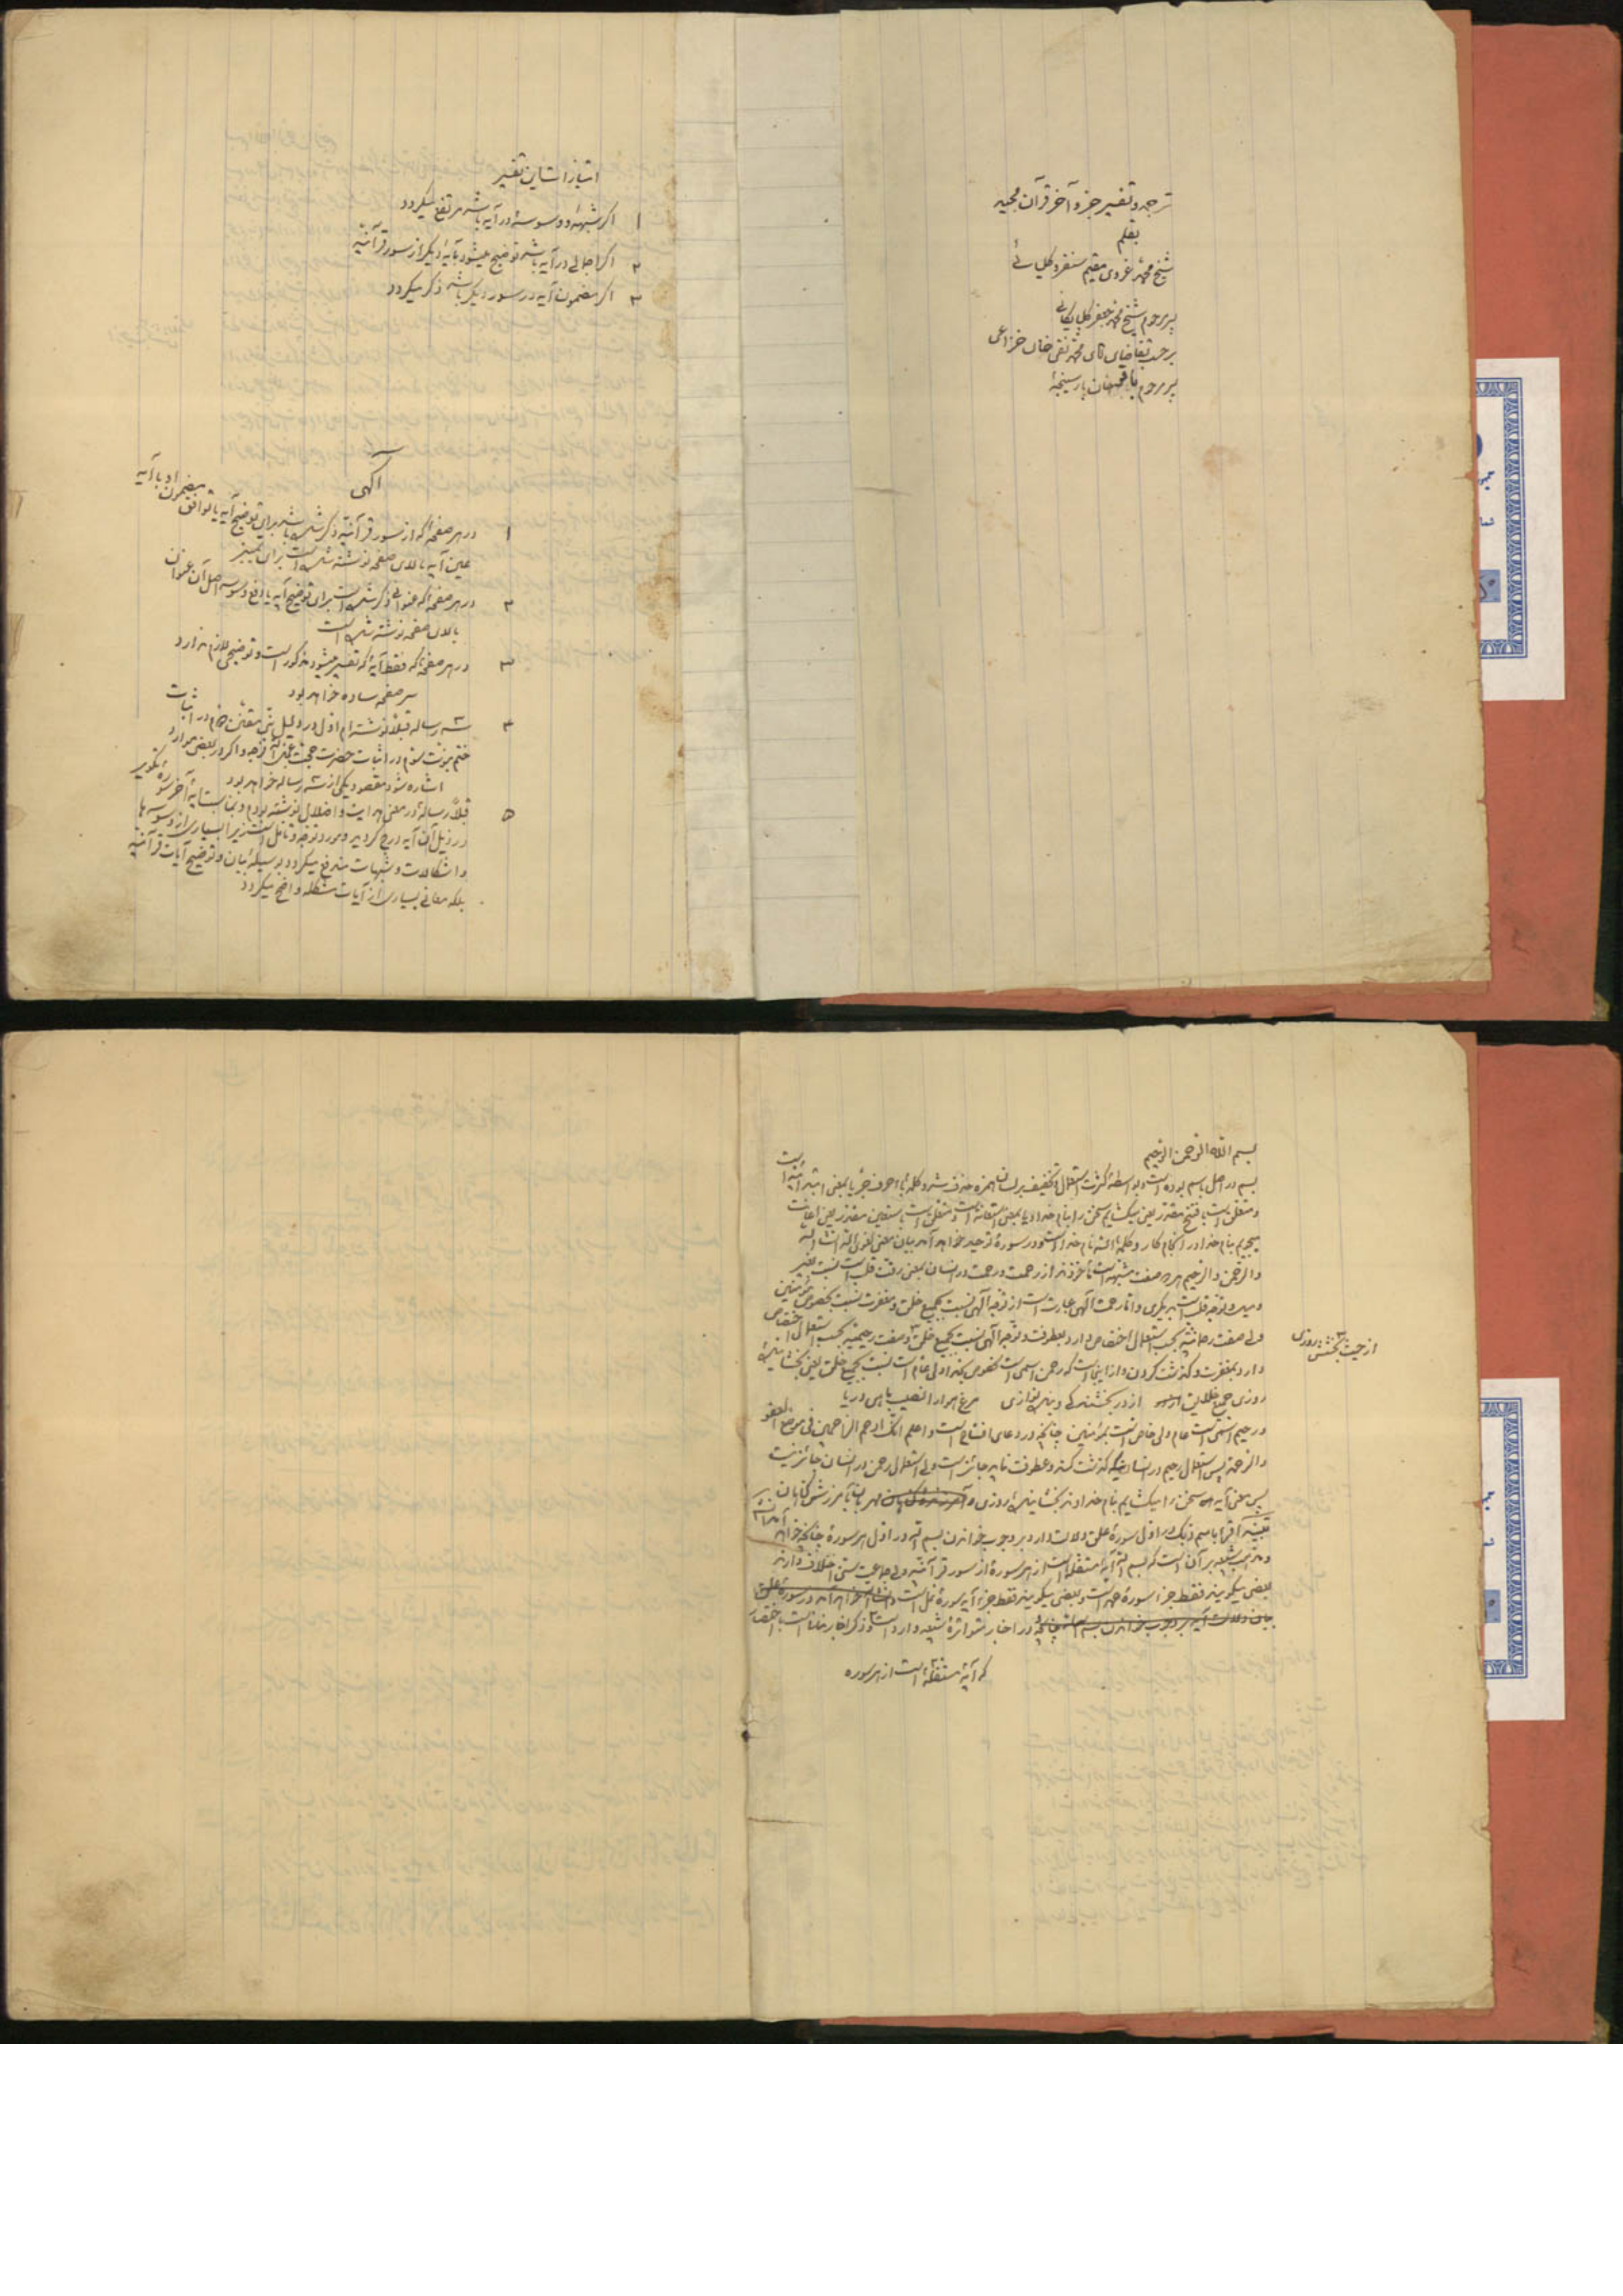 ترجمه و تفسیر جزو آخر قرآن مجید
بقلم
شیخ محمد غروی مقیم سنقر و کلیائی
پسر مرحوم شیخ محمد جعفر گلپایگانی
برحسب تقاضای آقای محمد تقی خان خزاعی
پسر مرحوم خان پارسینجهٔ
امتیازات این تفسیر
۱ اگر شبهه و وسوسهٔ در آیه باشد مرتفع میگردد
۲ اگر اجمالی در آیه باشد توضیح میشود بآیهٔ دیگر از سور قرآنیه
۳ اگر مضمون آیه در سور دیگر باشد ذکر میگردد
آگهی
۱ در هر صفحهٔ که از سور قرآنیه ذکر شده باشد برای توضیح آیه یا توافق مضمون او با آیه
عین آیه بالای صفحه نوشته شده است برای تمییز
۲ در هر صفحهٔ که عنوانی ذکر شده است برای توضیح آیه یا رفع وسوسه اصل آن عنوان
بالای صفحه نوشته شده است
۳ در هر صفحهٔ که فقط آیهٔ که تفسیر میشود مذکور است و توضیحی لازم ندارد
سر صفحه ساده خواهد بود
۴ سه رساله قبلاً نوشته‌ام اول در دلیل در اثبات
ختم نبوت سوم در اثبات حضرت حجت عجل الله فرجه و اگر در بعضی موارد
اشاره شود مقصود یکی از سه رساله خواهد بود
۵ قبلاً رسالهٔ در معنی هدایت و اضلال نوشته بودم و بمناسبت آیهٔ آخر سورهٔ تکویر
در ذیل آن آیه درج گردید و مورد توجه و تامل است زیرا بسیاری از وسوسه‌ها
و اشکالات و شبهات مندفع میگردد بوسیلهٔ بیان و توضیح آیات قرآنیه
بلکه معانی بسیاری از آیات مشکله واضح میگردد
بسم الله الرحمن الرحیم
بسم در اصل باسم بوده است و بواسطهٔ کثرت استعمال و تخفیف بر لسان همزه حذف شد و کلمهٔ با حرف جر یا بمعنی ابتدائیه است
و متعلق است بافتتح مقدر یعنی میگشایم سخن را بنام خدا و یا بمعنی استعانه است و متعلق است باستعین مقدر یعنی اعانت
میجویم بنام خدا در انجام کار و کلمهٔ الله نام خدا است و در سورهٔ توحید خواهد آمد بیان معنی لغوی الله انشاءالله
و الرحمن و الرحیم هر دو صفت مشبهه است مأخوذند از رحمت و رحمت در انسان بمعنی رقت قلب است نسبت بغیر
و میل و توجه قلب است بدیگری و اما رحمت الهی عبارت است از توجه الهی نسبت بجمیع خلق و مغفرت نسبت بخصوص مؤمنین
ولی صفت رحمانیه بحسب استعمال اختصاص دارد بعطوفت و توجه الهی نسبت بجمیع خلق و صفت رحیمیه بحسب استعمال اختصاص
از حیث بخشش روزی
دارد بمغفرت و گذشت کردن و از اینجا است که رحمن اسمی است مخصوص بخدا ولی عام است نسبت بجمیع خلق یعنی بخشایندهٔ
روزی جمیع خلایق است از در بخشندگی و بنده نوازی مرغ هوا را نصیب ماهی دریا
و رحیم اسمی است عام ولی خاص است بمؤمنین چنانچه در دعای افتتاح است و اعلم انک ارحم الراحمین فی موضع العفو
و الرحمة پس استعمال رحیم در انسانیکه گذشت کند و عطوفت نماید جائز است ولی استعمال رحمن در انسان جائز نیست
پس معنی آیه سخن را میگشایم بنام خداوند بخشایندهٔ روزی و مهربان بآمرزش گناهان
تبصره اقرا باسم ربک در اول سورهٔ علق دلالت دارد بر وجوب خواندن بسم الله در اول هر سورهٔ چنانچه خواهد آمد انشاءالله
و مذهب شیعه بر آن است که بسم الله آیهٔ مستقله است از هر سورهٔ از سور قرآنیه ولی جماعت سنی اختلاف دارند
بعضی میگویند فقط جزء سورهٔ حمد است و بعضی میگویند فقط جزء آیه سورهٔ نمل است
چنانچه در اخبار متواترهٔ شیعه وارد است و ذکر اخبار
که آیهٔ مستقله است از هر سوره